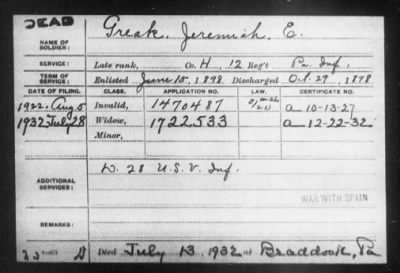 DEAD
NAME OF SOLDIER: Greak, Jeremiah E.
SERVICE: Late rank, Co. H, 12 Reg't Pa. Inf.
TERM OF SERVICE: Enlisted June 15, 1898 Discharged Oct. 29, 1898
DATE OF FILING. CLASS. APPLICATION NO. LAW. CERTIFICATE NO.
1922, Aug 5 Invalid, 1470487 a 10-13-27
1932 July 28 Widow, 1722533 a 12-22-32
Minor,
ADDITIONAL SERVICES: D. 28 U.S.V. Inf.
WAR WITH SPAIN
REMARKS:
Died July 13, 1932 at Braddock, Pa